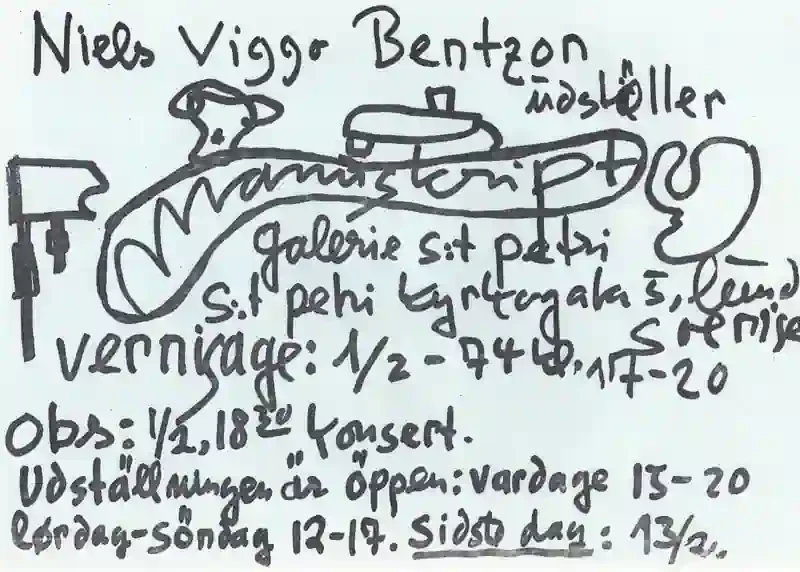 Niels Viggo Bentzon
udställer
Manuskript
galerie s:t petri
s:t petri kyrkogata 5, lund
sverige
vernisage: 1/2 - 74 kl. 17-20
obs: 1/2, 18³⁰ konsert.
Udställningen är öppen: vardage 15-20
lørdag-söndag 12-17. Sidste dag: 13/2.